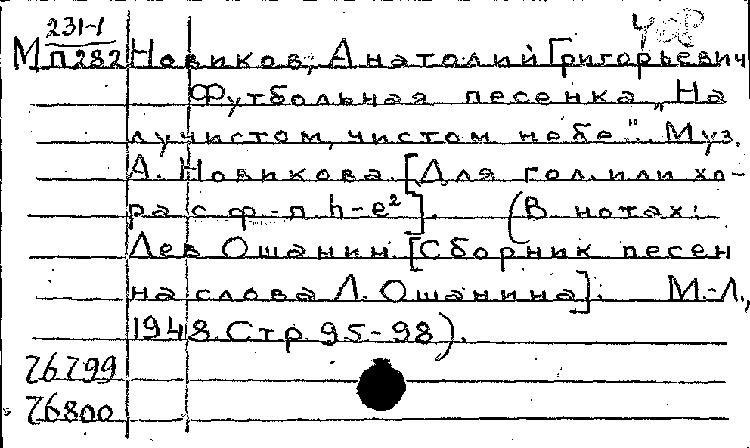 231-1
М П282 Новиков, Анатолий Григорьевич
Футбольная песенка „На
лучистом, чистом небе". Муз.
А. Новикова. [Для гол. или хо-
ра с ф-п h-e²]. (В нотах:
Лев Ошанин [Сборник песен
на слова Л. Ошанина]. М.-Л.,
1948. Стр. 95-98).
76799
76800